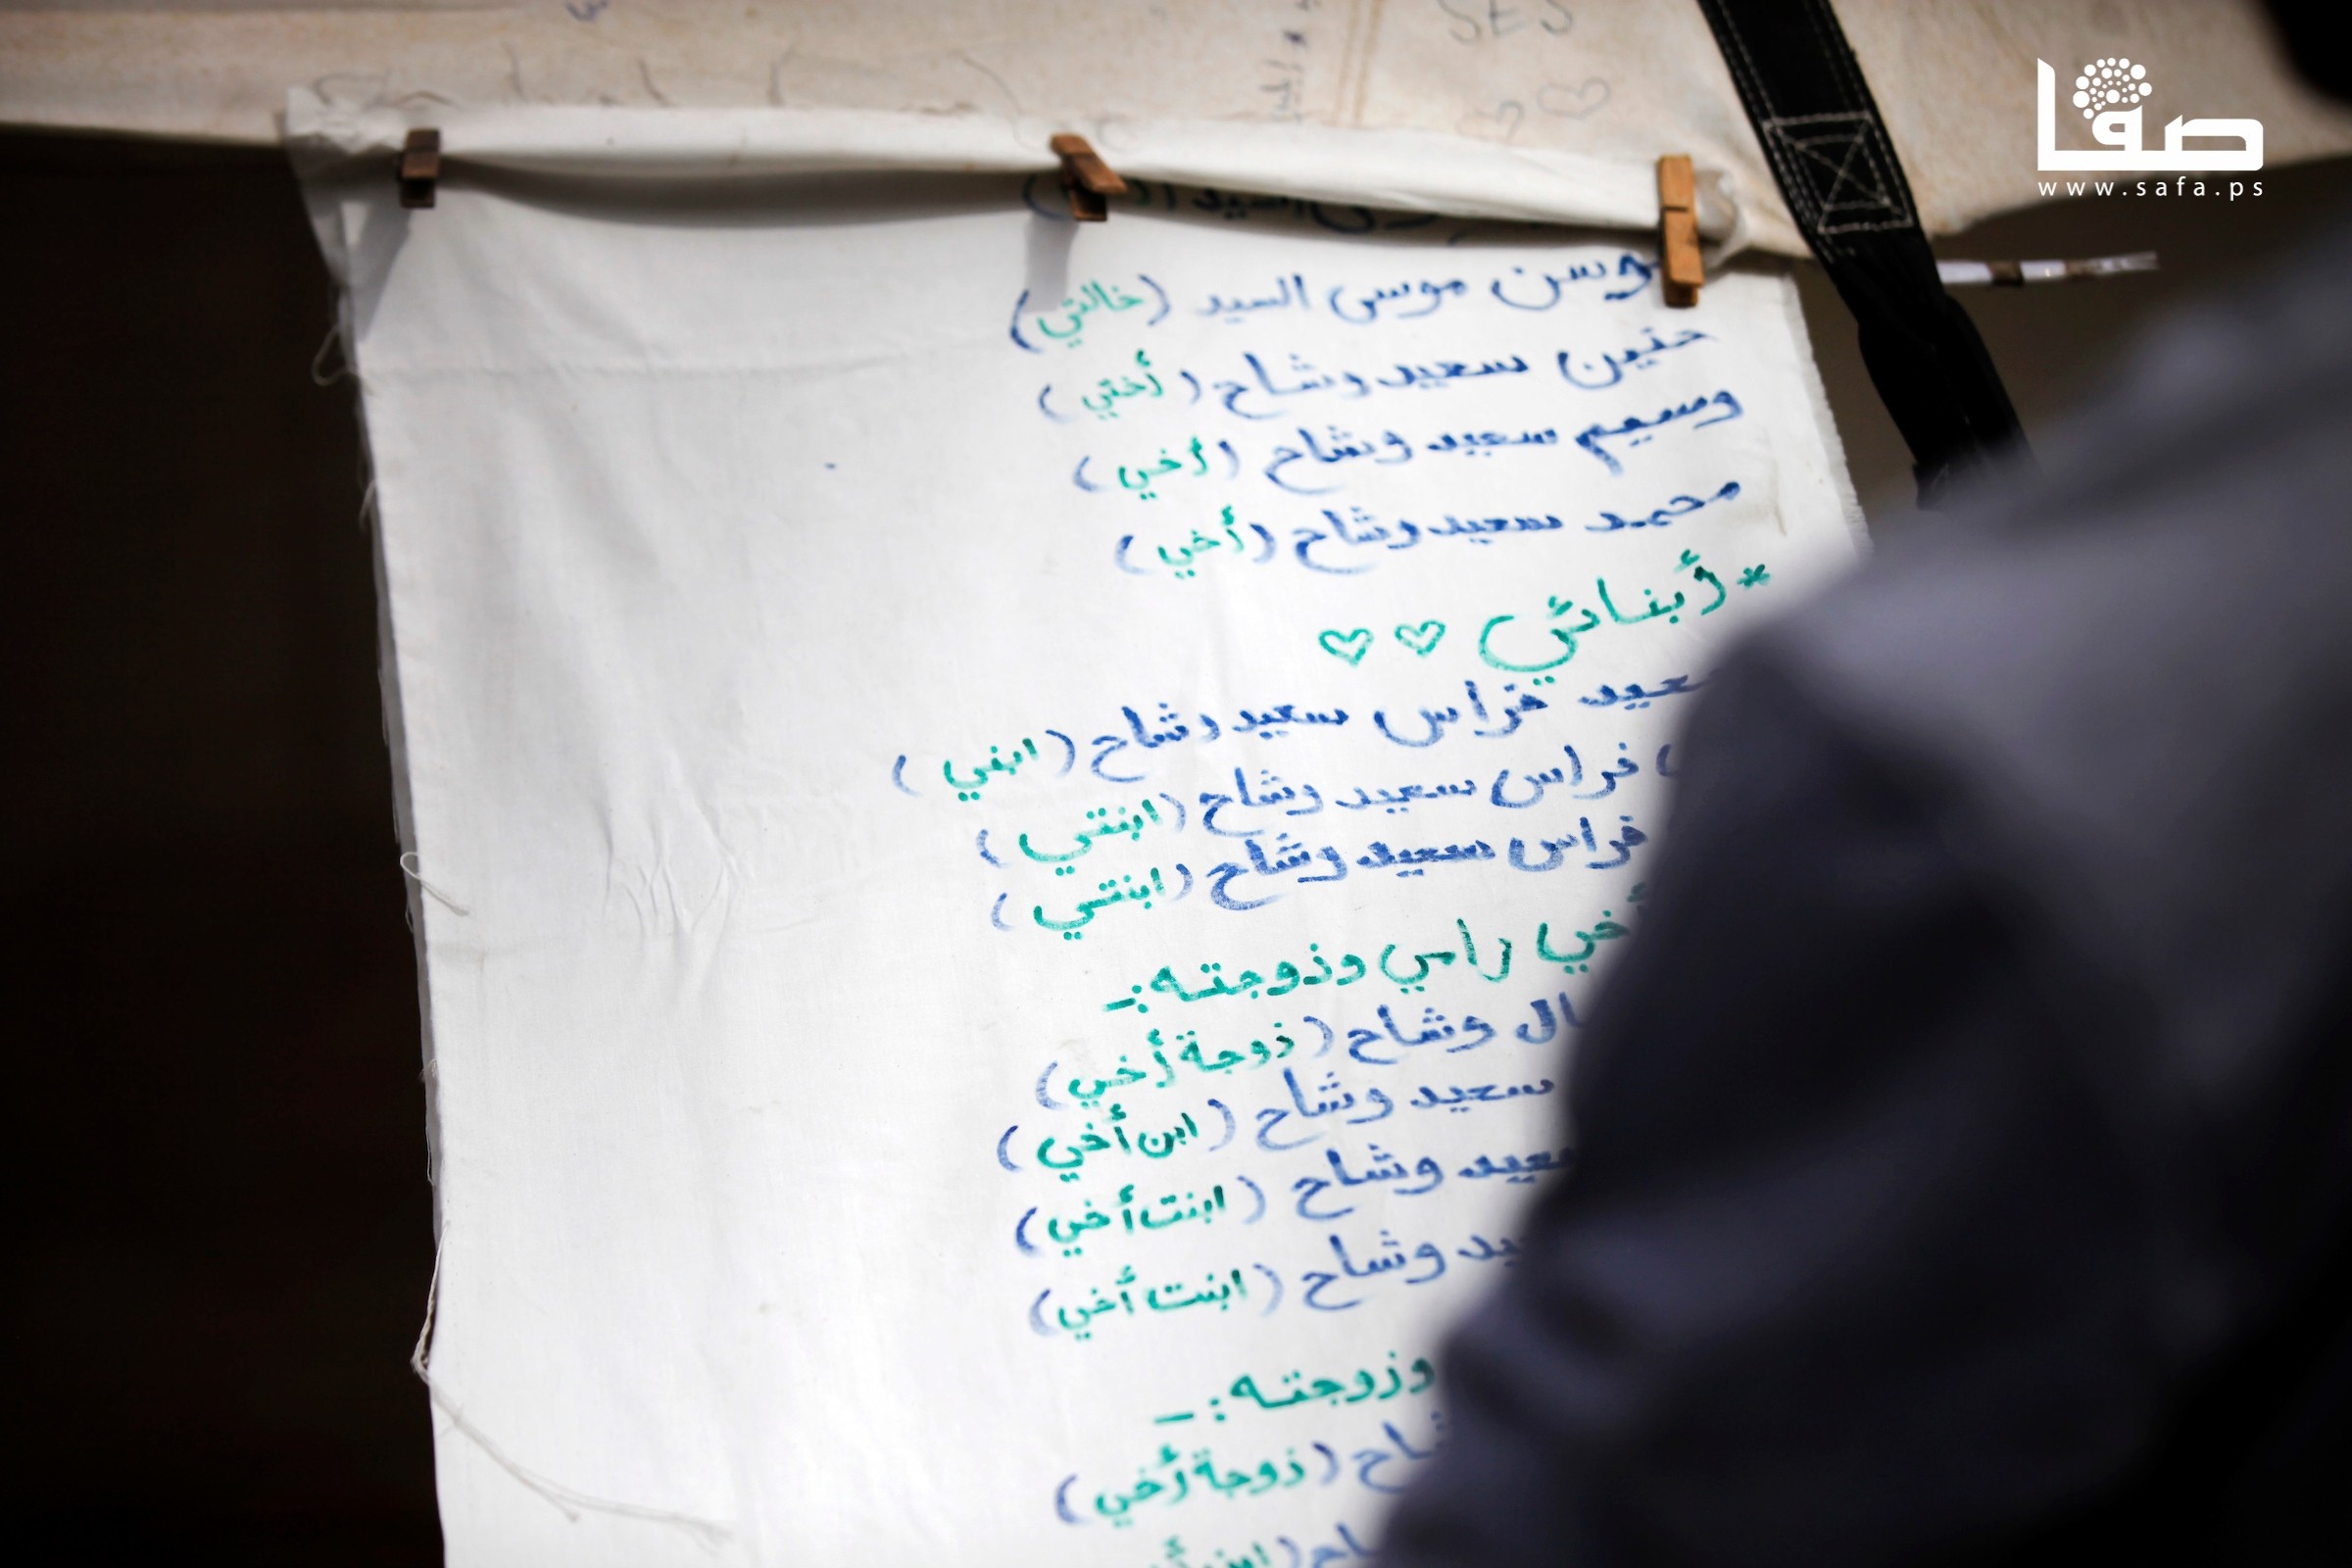 SES
صفا
www.safa.ps
سوسن موسى السيد (خالتي)
حنين سعيد وشاح (أختي)
وسيم سعيد وشاح (أخي)
محمد سعيد وشاح (أخي)
*أبنائي ♡ ♡
سعيد فراس سعيد وشاح (ابني)
فراس سعيد وشاح (ابنتي)
فراس سعيد وشاح (ابنتي)
أخي رامي وزوجته:-
وشاح (زوجة أخي)
سعيد وشاح (ابن أخي)
سعيد وشاح (ابنت أخي)
وشاح (ابنت أخي)
وزوجته:-
(زوجة أخي)